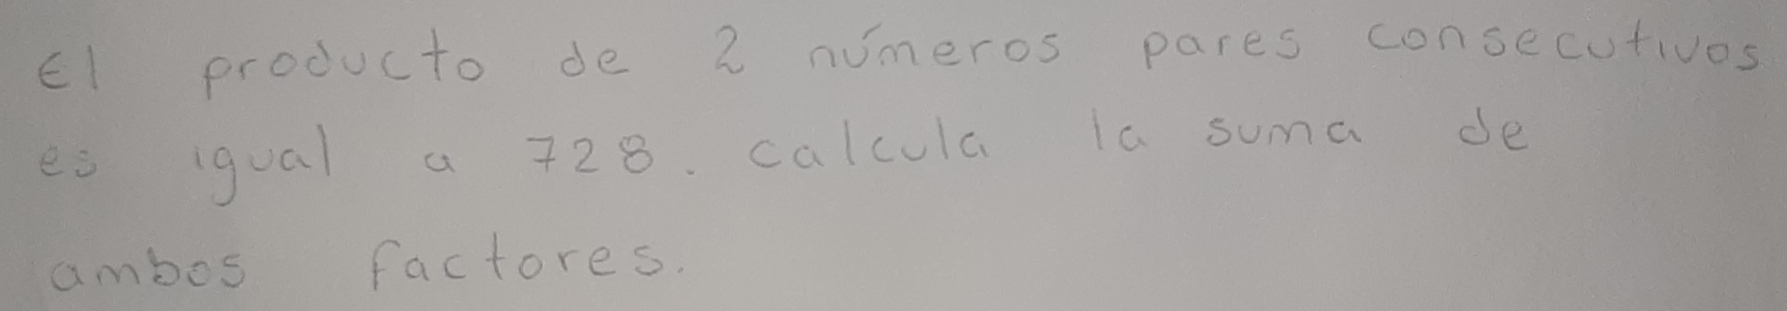 El producto de 2 números pares consecutivos
es igual a 728. calcula la suma de
ambos factores.